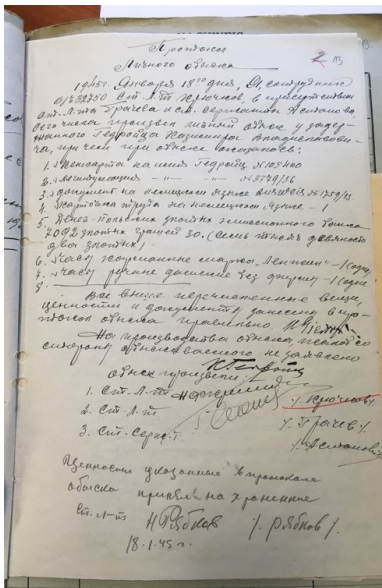 Протокол
Личного обыска
2 ПЗ
1945 г. Января 18го дня, Я, сотрудник
о/з 38750 Ст. Л-т Крючков, в присутствии
Л-та Грачева и Ст. Сержанта Асланова,
сего числа произвел личный обыск у задер-
жанного Гедройца Казимира
ча, при чем при обыске оказалось:
1. Кенкарта на имя Гедройц №105400
2. — " — " — №3779/36
3. Документ на немецком языке №1759/43
4. Карточка труда на немецком языке - 1
5. Денег польских злотых эмиссионного банка
7092 злотых грошей 30. (семь тысяч девяносто
два злотых)
6. Часы карманные марки „ - 1 (одни)
7. Часы ручные дамские без фирмы - 1 (одни)
8.
Все выше перечисленные вещи,
ценности и документы занесены в про-
токол обыска правильно
На производства обыска жалоб со
стороны обыскиваемого не заявлено
Обыск произвели
1. Ст. Л-т /. Крючков /.
2. Ст. Л-т /. Грачев /.
3. Ст. Серж-т. /. Асланов /.
Ценности указанные в протоколе
обыска принял на хранение
Ст. Л-т Н Рябков /. Рябков /.
18.1.45 г.